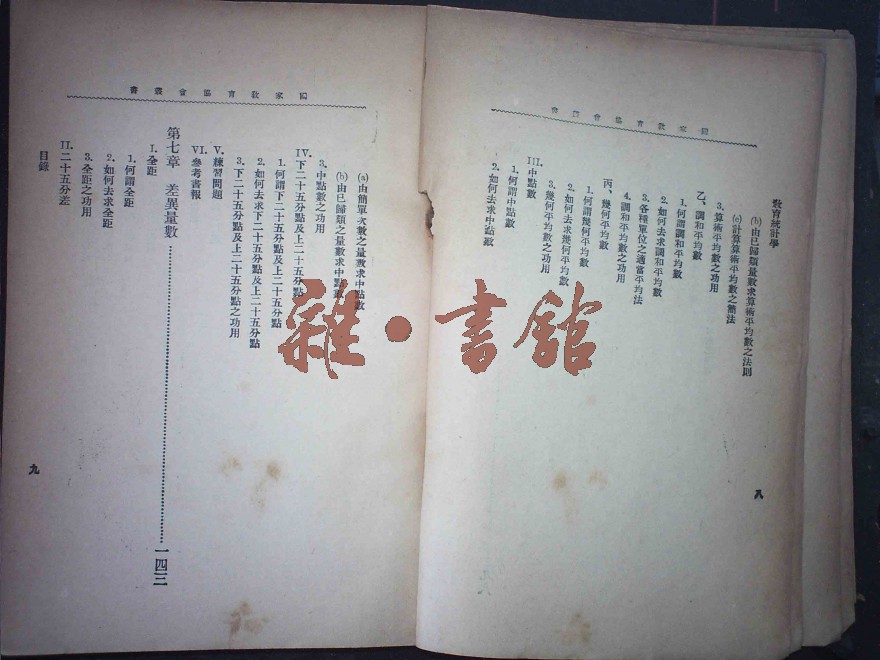 國家教育協會叢書
教育統計學
(b)由已歸類量數求算術平均數之法則
(c)計算算術平均數之簡法
3.算術平均數之功用
乙、調和平均數
1.何謂調和平均數
2.如何去求調和平均數
3.各種單位之適當平均法
4.調和平均數之功用
丙、幾何平均數
1.何謂幾何平均數
2.如何去求幾何平均數
3.幾何平均數之功用
III.中點數
1.何謂中點數
2.如何去求中點數
八
國家教育協會叢書
(a)由簡單次數之量數求中點數
(b)由已歸類之量數求中點數
3.中點數之功用
IV.下二十五分點及上二十五分點
1.何謂下二十五分點及上二十五分點
2.如何去求下二十五分點及上二十五分點
3.下二十五分點及上二十五分點之功用
V.練習問題
VI.參考書報
第七章 差異量數……一四三
I.全距
1.何謂全距
2.如何去求全距
3.全距之功用
II.二十五分差
目錄
九
雜·書館